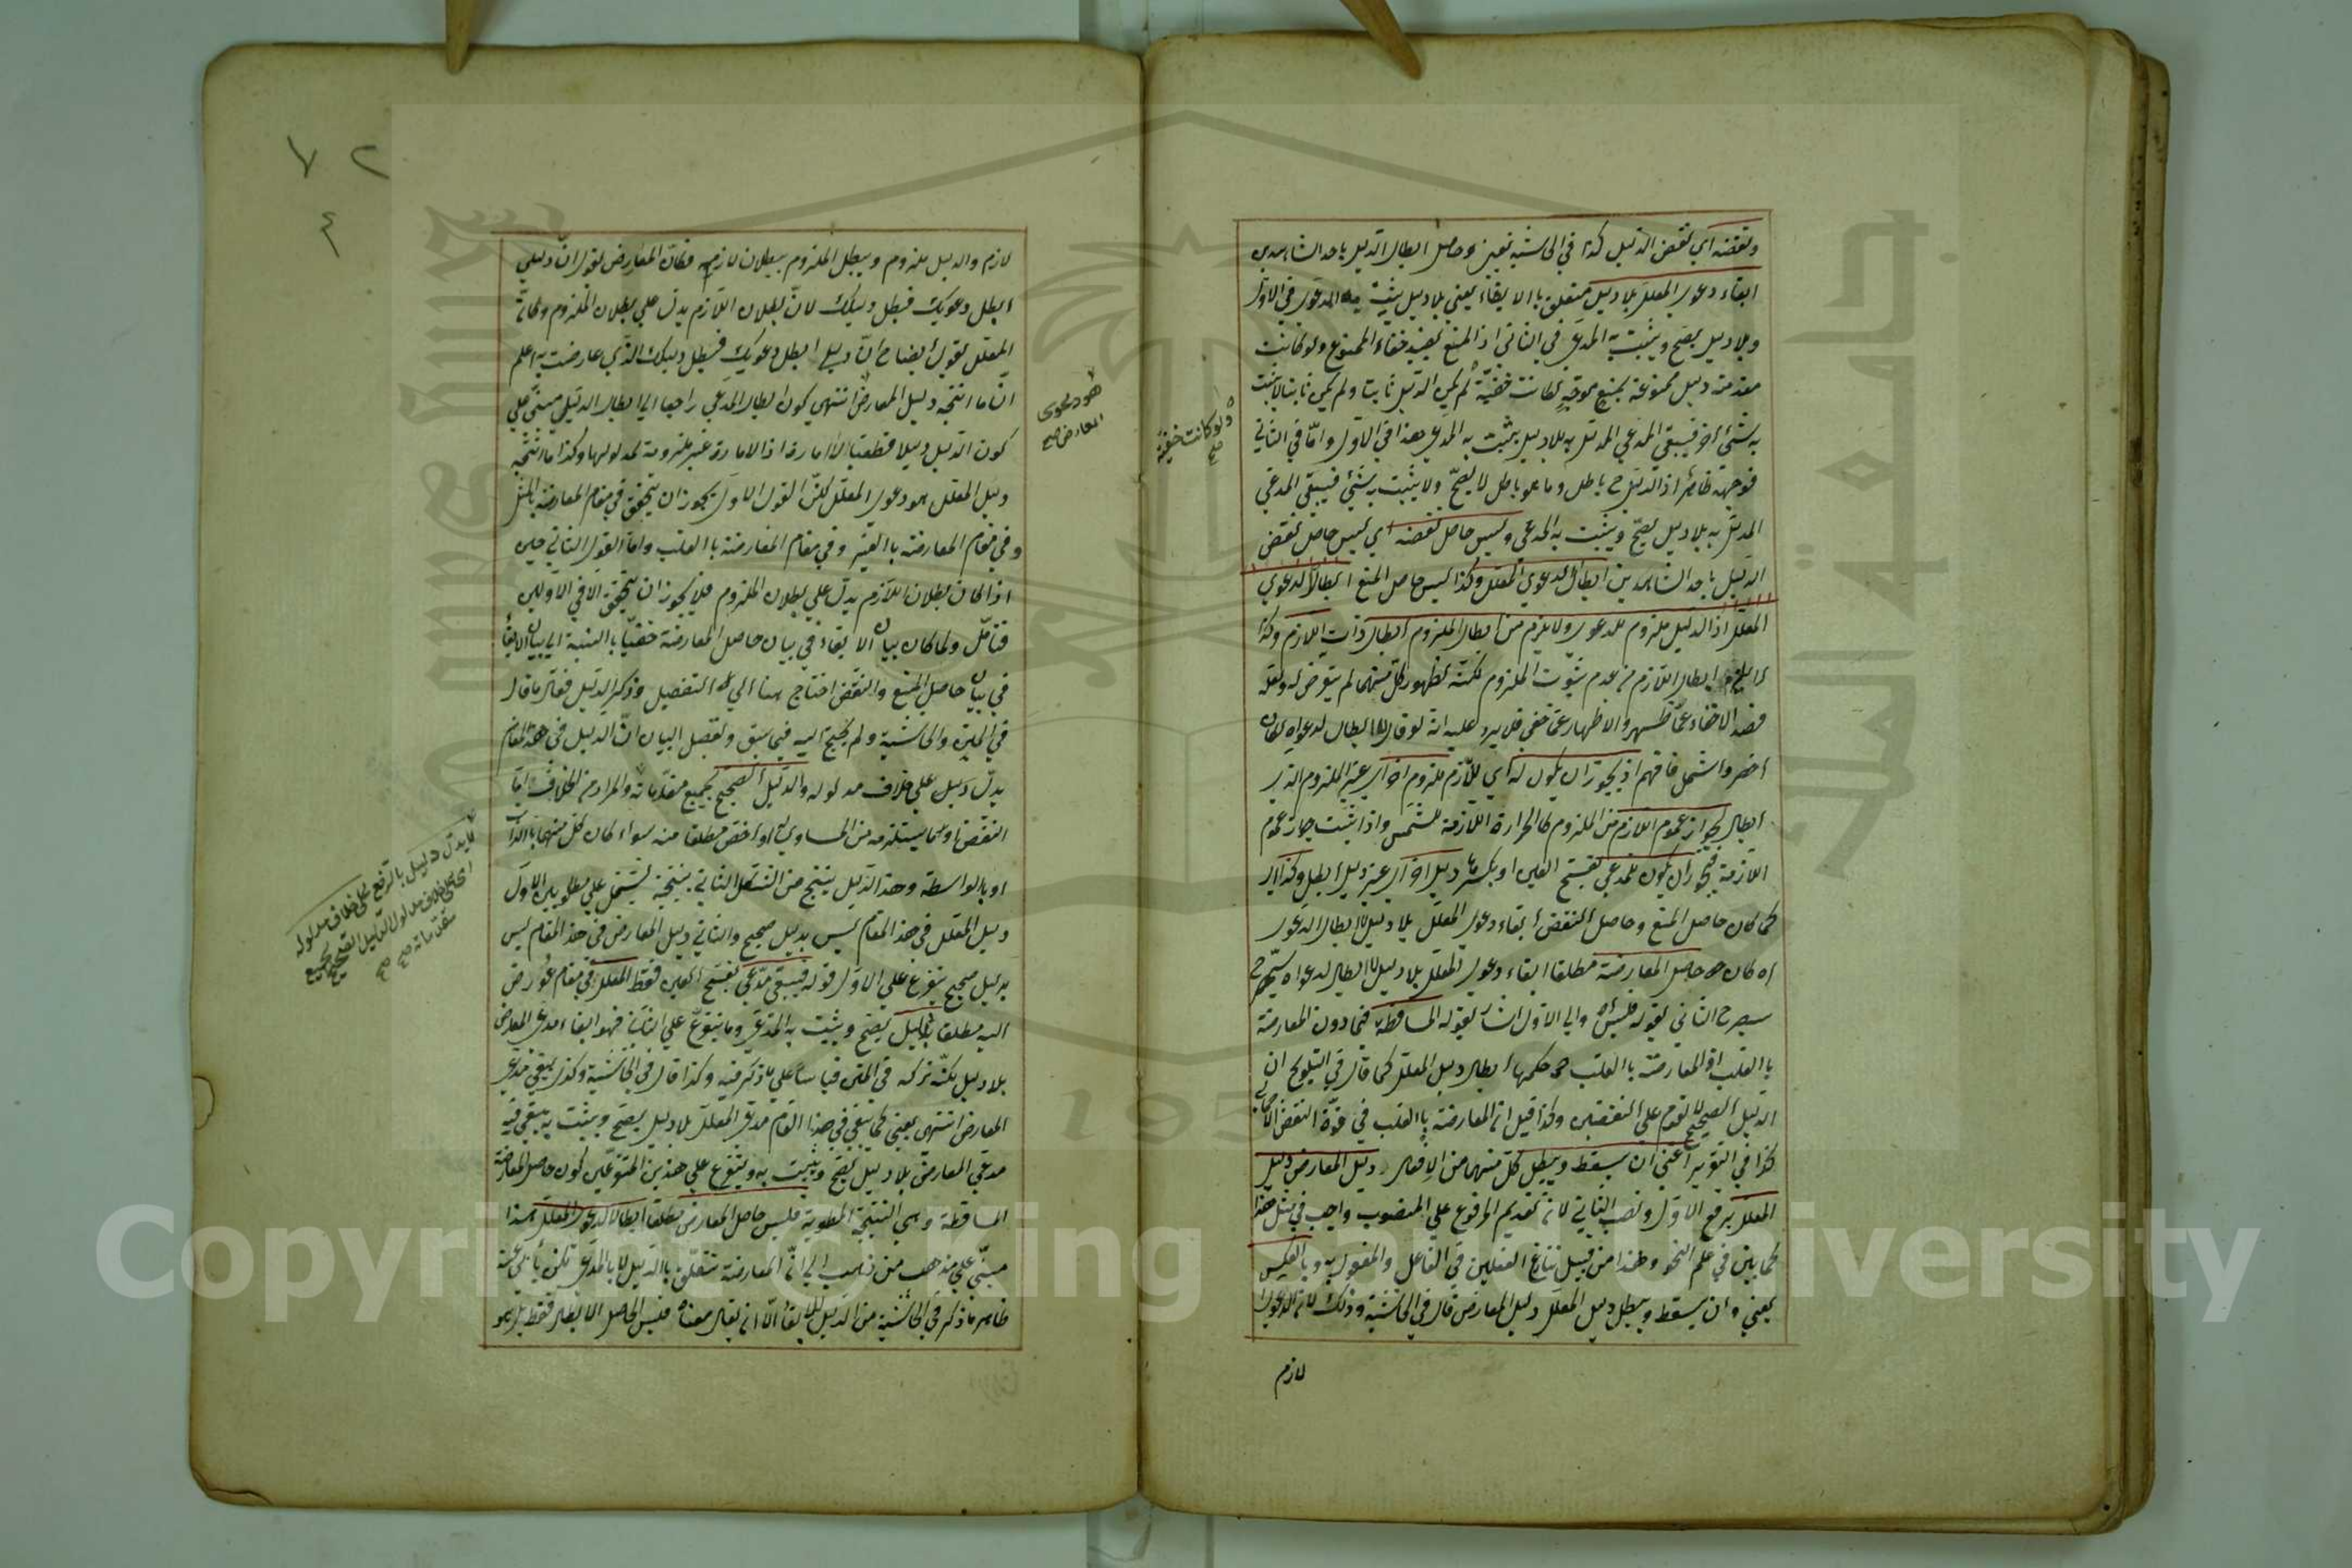 ونقضه اي نقض الدليل كذا في الحاشية فعين وحاصل ابطال الدليل باحد الشاهدين
ابقاء دعوى المعلل بلا دليل متعلق بالابقاء يعني بلا دليل يثبت به المدعى في الاول
وبلا دليل يصح ويثبت به المدعى في الثاني اذ المنع يفيد خفاء الممنوع ولو كانت
مقدمة دليل ممنوعة بمنع موجه كانت خفية لم يكن الدليل ثابتا ولم يكن ثابتا لا يثبت
به شئ اخر فيبقى المدعي المدلل به بلا دليل يثبت به المدعى هذا في الاول واما في الثاني
فوجهه ظاهر اذ الدليل ح باطل وما هو باطل لا يصح ولا يثبت به شئ فيبقى المدعي
المدلل به بلا دليل يصح ويثبت به المدعى وليس حاصل نقضه اي ليس حاصل نقض
الدليل باحد الشاهدين ابطالا لدعوي المعلل وكذا ليس حاصل المنع ابطالا لدعوي
المعلل اذ الدليل ملزوم للدعوى ولا يلزم من ابطال الملزوم ابطال ذات اللازم وكذا
لا يلزم ابطال اللازم من عدم ثبوت الملزوم لكنه لظهور كل منهما لم يتعرض له ولعله
قصد الاخفاء عما ظهر والاظهار عما خفي فلا يرد عليه انه لو قال لا ابطال لدعواه لكان
اخصر واشمل فافهم اذ يجوز ان يكون له اي للازم ملزوم اخر اي غير الملزوم الذي
ابطل لجواز عموم اللازم من الملزوم كالحرارة اللازمة للشمس واذا ثبت جواز عموم
اللازم فيجوز ان يكون للمدعي بفتح العين او بكسرها دليل اخر اي غير دليل ابطل وكذا اي
كما كان حاصل المنع وحاصل النقض ابقاء دعوى المعلل بلا دليل لا ابطال الدعوى
كان حاصل المعارضة مطلقا ابقاء دعوى المعلل بلا دليل لا ابطال لدعواه
سيصرح الثاني بقوله فليس اه والي الاول اشار بقوله المساقطة فيما دون المعارضة
بالقلب اذ المعارضة بالقلب حكمها ابطال دليل المعلل كما قال في التلويح ان
الدليل الصحيح لا يقوم على النقيضين وكذا قيل ان المعارضة بالقلب في قوة النقض الاجمالي
كذا في التقرير اعني ان يسقط ويبطل كل منهما من الافعال دليل المعارض دليل
المعلل برفع الاول ونصب الثاني لان تقديم المرفوع علي المنصوب واجب في مثل هذا
كما بين في علم النحو وهذا من قبيل تنازع الفعلين في الفاعل والمفعول به وبالعكس
يعني وان يسقط ويبطل دليل المعلل دليل المعارض قال في الحاشية وذلك لان الدعوى
لازم
ولو كانت خفية
صح
٧٢
٤
لازم والدليل ملزوم ويبطل الملزوم ببطلان لازمه فكان المعارض يقول ان دليلي
ابطل دعويك فبطل دليلك لان بطلان اللازم يدل علي بطلان الملزوم وكان
المعلل يقول ايضا ح ان دليلي ابطل دعويك فبطل دليلك الذي عارضت به اعلم
ان ما انتجه دليل المعارض انتهى كون ابطال المدعي راجعا الي ابطال الدليل مبني علي
كون الدليل دليلا قطعيا لا امارة اذ الامارة غير ملزومة لمدلولها وكذا ما انتجه
دليل المعلل هو دعوى المعلل لكن القول الاول يجوز ان يتحقق في مقام المعارضة بالمثل
وفي مقام المعارضة بالغير وفي مقام المعارضة بالقلب واما القول الثاني حين
اذا كان بطلان اللازم يدل علي بطلان الملزوم فلا يجوز ان يتحقق الا في الاولين
فتأمل ولما كان بيان الابقاء في بيان حاصل المعارضة خفيا بالنسبة الي بيان الابقاء
في بيان حاصل المنع والنقض احتاج هنا الي التفصيل وذكر الدليل فقال ما قال
في المتن والحاشية ولم يحتج اليه فيما سبق وتفصيل البيان ان الدليل في هذا المقام
يدل دليل علي خلاف مدلوله والدليل الصحيح بجميع مقدماته والمراد من الخلاف اما
النقيض او ما يستلزمه من المساوي له او اخص مطلقا منه سواء كان كل منهما بالذات
او بالواسطة وهذا الدليل ينتج من الشكل الثاني نتيجة تشتمل علي مطلوبين الاول
دليل المعلل في هذا المقام ليس بدليل صحيح والثاني دليل المعارض في هذا المقام ليس
بدليل صحيح يتفرع علي الاول قوله فيبقى مدعى بفتح العين فقط المعلل في مقام عورض
اليه مطلقا بلا دليل يصح ويثبت به المدعى وما يتفرع علي الثاني فهو ابقاء مدعى المعارض
بلا دليل لكنه تركه في المتن قياسا علي ما ذكر فيه وكذا قال في الحاشية وكذا يبقى مدعى
المعارض انتهى يعني كما يبقى في هذا المقام مدعى المعلل بلا دليل يصح ويثبت به يبقي فيه
مدعي المعارض بلا دليل يصح ويثبت به ويتفرع علي هذين المتفرعين كون حاصل المعارضة
المساقطة وهي النتيجة المطوية فليس حاصل المعارض مطلقا ابطالا لدعوى المعلل هذا
مبني علي مذهب من ذهب الي ان المعارضة تتعلق بالدليل لا بالمدعى لكن يأبى عنه
ظاهر ما ذكر في الحاشية من الدليل للابقاء الا ان يقال معناه فليس الحاصل الابطال فقط بل هو
هو دعوى
المعارض صح
لا يدل دليل بالرفع علي خلاف مدلوله
اي علي خلاف مدلول الدليل الصحيح بجميع
مقدماته صح